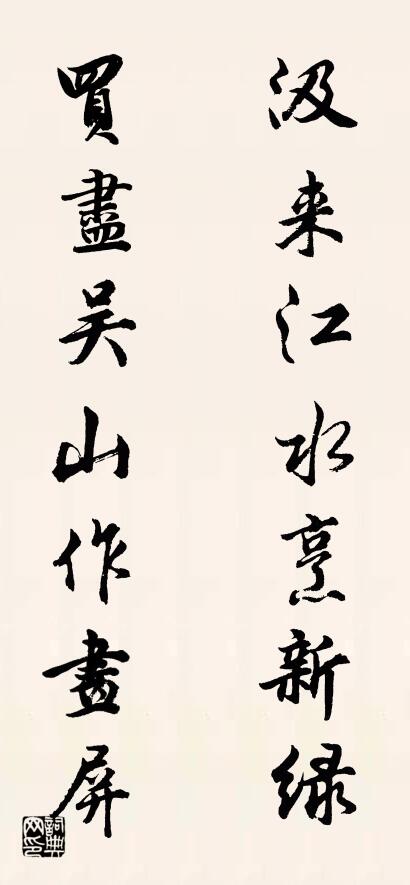 汲来江水烹新绿
買盡吴山作畫屏
詞典
网印